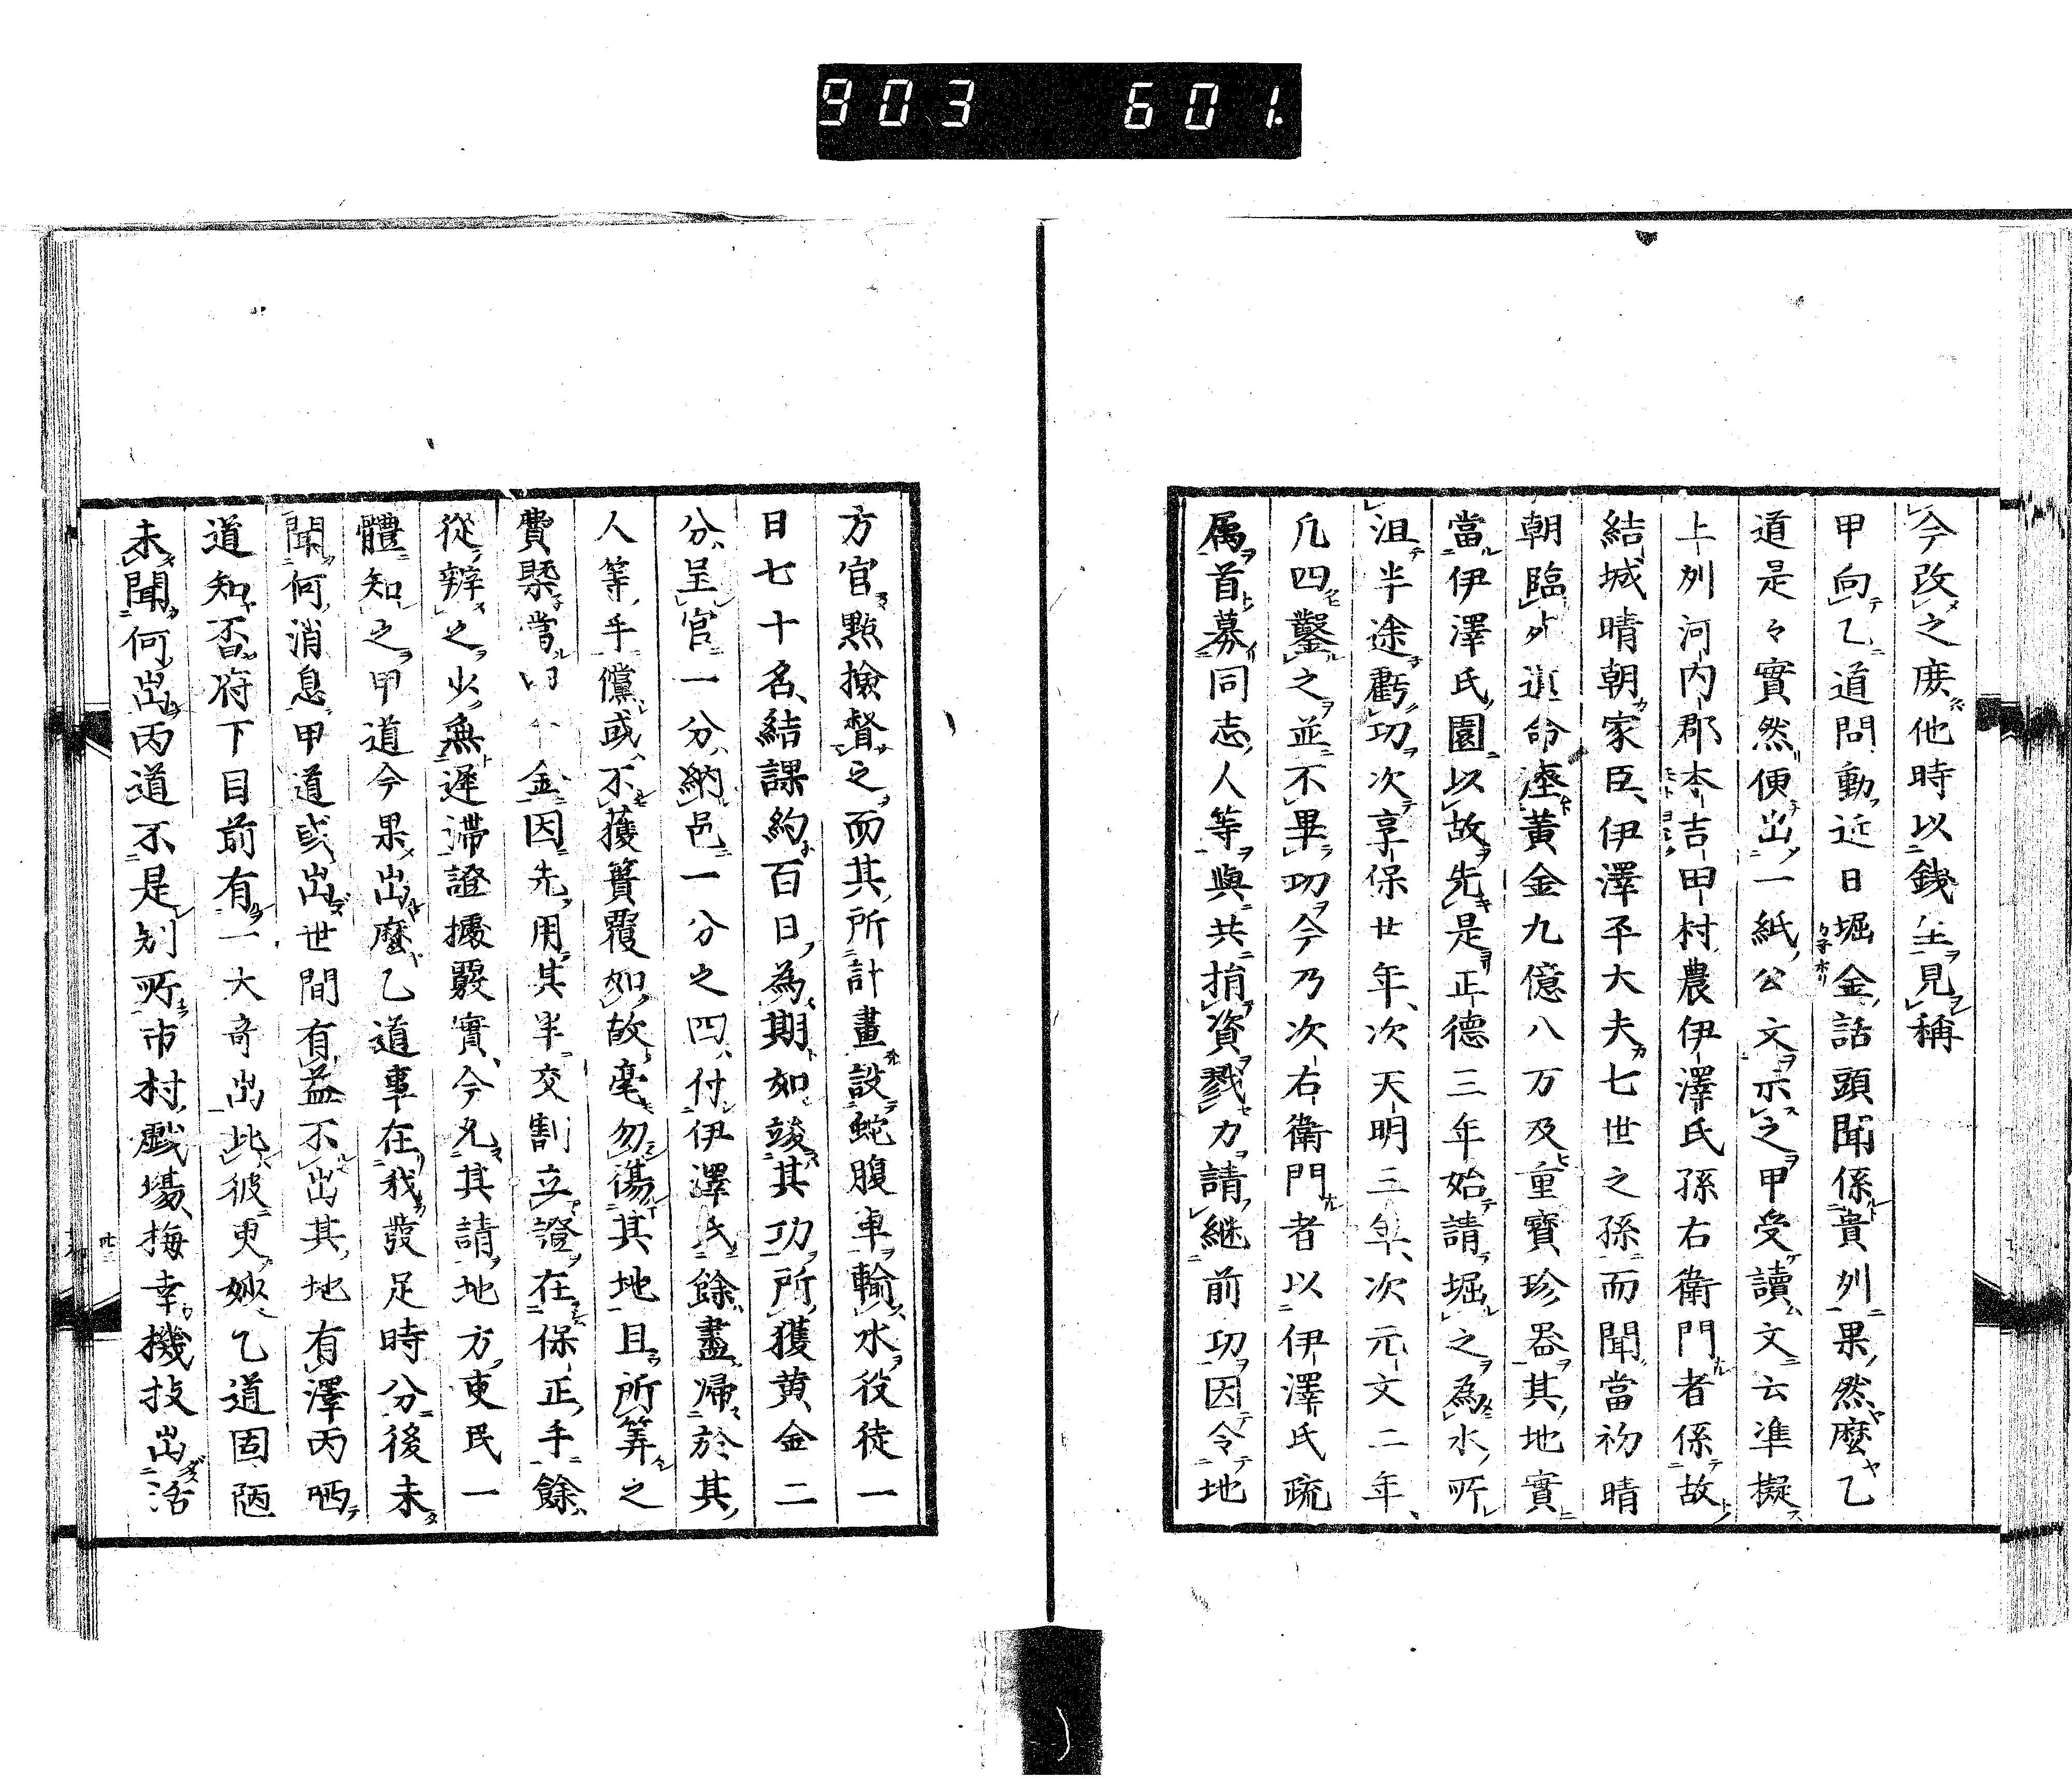 903 601
今改之庶他時以錢生見稱
甲向乙道問動近日堀金話頭聞係貴列果然麼乙
道是々實然便出一紙公文示之甲受讀文云準擬
上列河内郡本吉田村農伊澤氏孫右衛門者係故
結城晴朝家臣伊澤平大夫七世之孫而聞當初晴
朝臨命瘞黄金九億八万及重寶珍器其地實
當伊澤氏園以故先是正德三年始請堀之為水所
沮半途虧功次享保廿年次天明三年次元文二年
凡四鑿之並不畢功今乃次右衛門者以伊澤氏疏
属首募同志人等與共捐資戮力請継前功因令地
方官點撿督之而其所計畫設蛇腹車輸水役徒一
日七十名結課約百日為期如竣其功所獲黄金二
分呈官一分納邑一分之四付伊澤氏餘盡帰於其
人等手儻或不獲簣覆如故毫勿傷其地且所筭之
費槩當金因先用其半交割立證在保正手餘
從辨之少無遲滞證據覈實今允其請地方吏民一
體知之甲道今果出麼乙道事在我發足時分後未
聞何消息甲道或出世間有益不出其地有澤丙哂
道知否府下目前有一大奇出比彼更妙乙道固陋
未聞何出丙道不是別所市村戯場梅幸機技出活